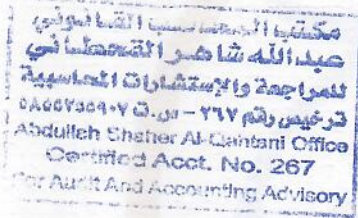 مكتب المحاسب القانوني
عبدالله شاهر القحطاني
للمراجعة والإستشارات المحاسبية
ترخيص رقم ٢٦٧ - س.ت ٥٨٥٥٣٥٥٩٠٧
Abdullah Shaher Al-Qahtani Office
Certified Acct. No. 267
For Audit And Accounting Advisory